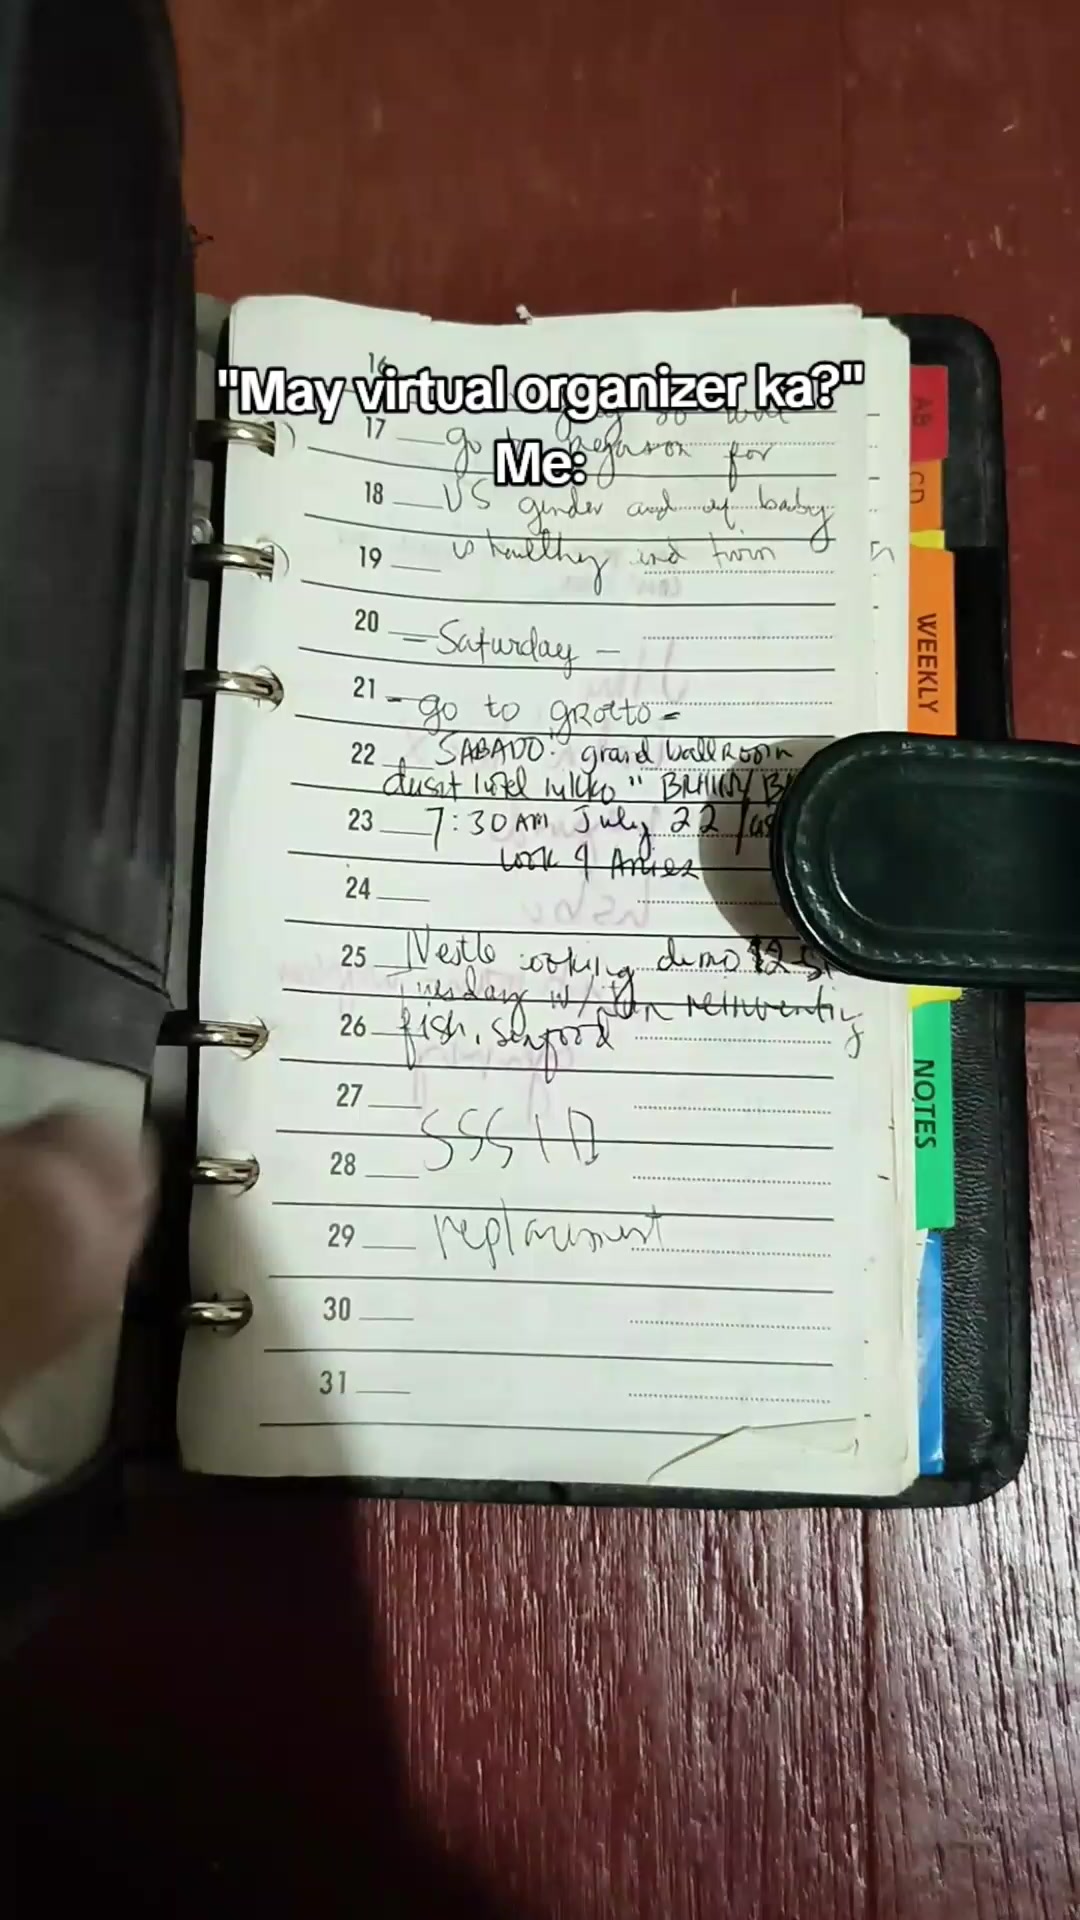 "May virtual organizer ka?"
Me:
16
17 go for
18 US gender and of baby
19 is healthy and twin
20 - Saturday -
21 - go to gRotto -
22 SABADO: grand ballRoom
dusit hotel nikko "
23 7:30 AM July 22
24
25 Nestle cooking demo
Tuesday w/
26 fish, seafood
27
SSS ID
28
29 replacement
30
31
AB
CD
WEEKLY
NOTES